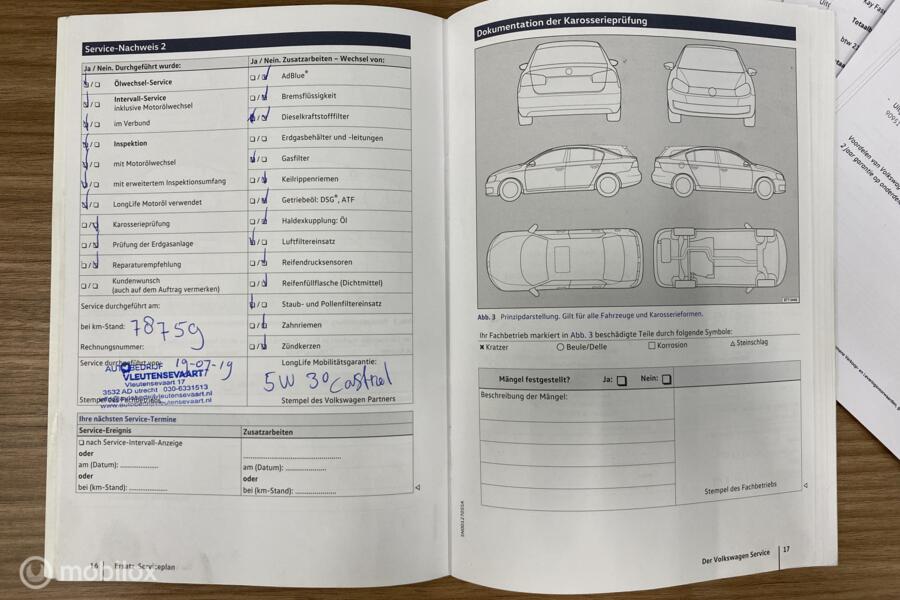 Service-Nachweis 2
Ja / Nein. Durchgeführt wurde:
Ölwechsel-Service
Intervall-Service
inklusive Motorölwechsel
im Verbund
Inspektion
mit Motorölwechsel
mit erweitertem Inspektionsumfang
LongLife Motoröl verwendet
Karosserieprüfung
Prüfung der Erdgasanlage
Reparaturempfehlung
Kundenwunsch
(auch auf dem Auftrag vermerken)
Service durchgeführt am:
bei km-Stand: 78759
Rechnungsnummer:
Service durchgeführt von: 19-07-19
AUTOBEDRIJF
VLEUTENSEVAART
Vleutensevaart 17
3532 AD utrecht 030-6331513
Stempel des Fachbetriebs
Ja / Nein. Zusatzarbeiten – Wechsel von:
AdBlue®
Bremsflüssigkeit
Dieselkraftstofffilter
Erdgasbehälter und -leitungen
Gasfilter
Keilrippenriemen
Getriebeöl: DSG®, ATF
Haldexkupplung: Öl
Luftfiltereinsatz
Reifendrucksensoren
Reifenfüllflasche (Dichtmittel)
Staub- und Pollenfiltereinsatz
Zahnriemen
Zündkerzen
LongLife Mobilitätsgarantie:
5W 30 Castrol
Stempel des Volkswagen Partners
Ihre nächsten Service-Termine
Service-Ereignis
nach Service-Intervall-Anzeige
oder
am (Datum):
oder
bei (km-Stand):
Zusatzarbeiten
am (Datum):
oder
bei (km-Stand):
16 Ersatz-Serviceplan
Dokumentation der Karosserieprüfung
Abb. 3 Prinzipdarstellung. Gilt für alle Fahrzeuge und Karosserieformen.
Ihr Fachbetrieb markiert in Abb. 3 beschädigte Teile durch folgende Symbole:
× Kratzer ○ Beule/Delle □ Korrosion △ Steinschlag
Mängel festgestellt? Ja: Nein:
Beschreibung der Mängel:
Stempel des Fachbetriebs
Der Volkswagen Service 17
Voordelen van Volkswagen
2 jaar garantie op onderdelen
mobilox